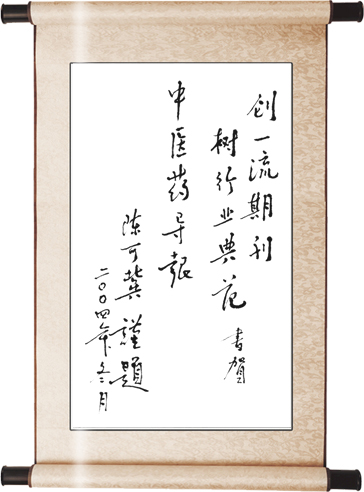 创一流期刊
树行业典范
书贺
中医药导报
陈可冀谨题
二〇〇四年冬月